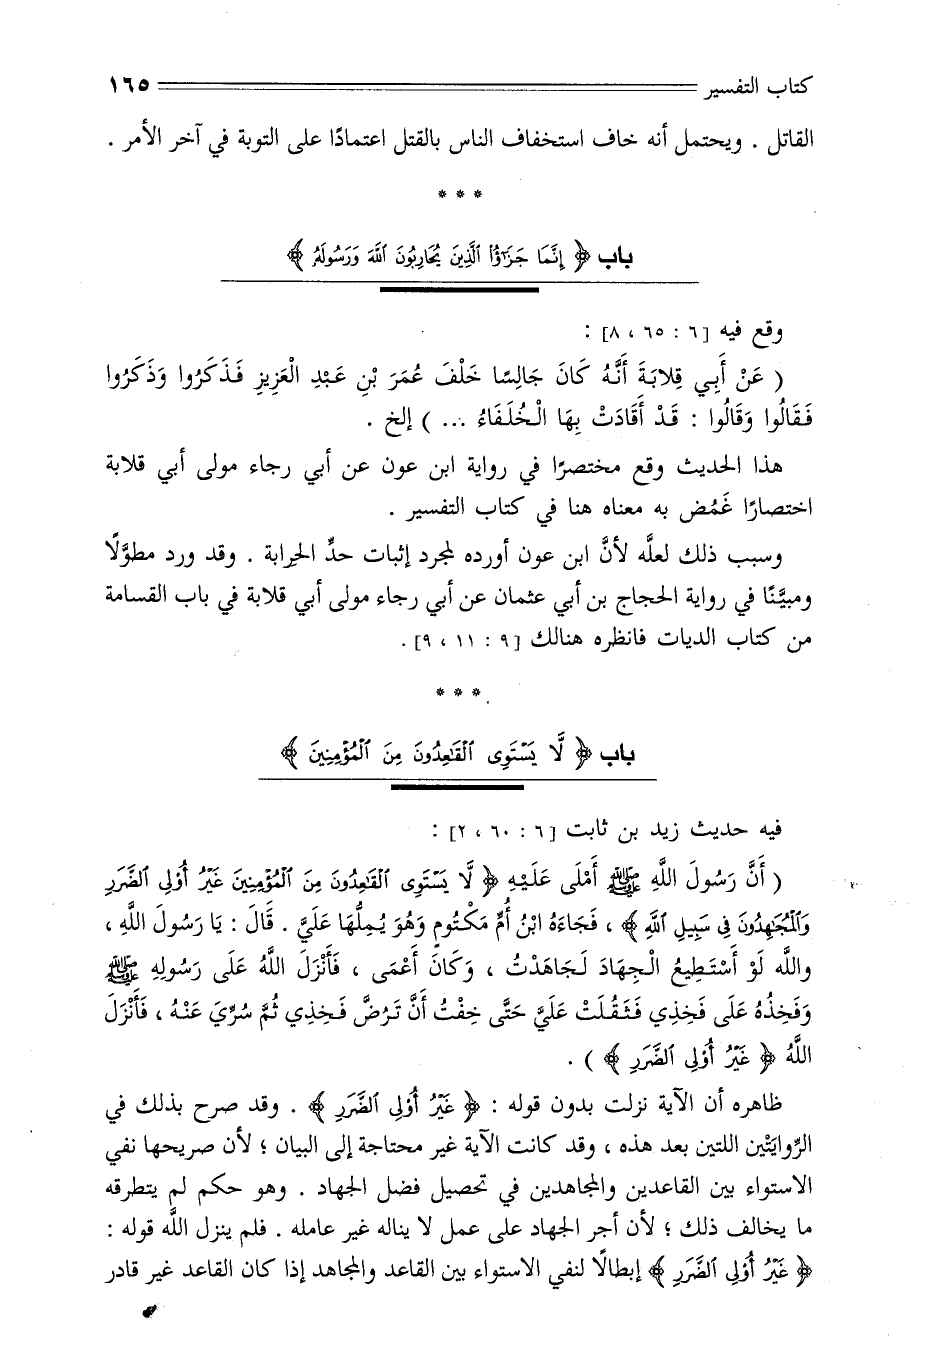 كتاب التفسير ١٦٥
القاتل . ويحتمل أنه خاف استخفاف الناس بالقتل اعتمادًا على التوبة في آخر الأمر .
* * *
باب ﴿ إِنَّمَا جَزَٰٓؤُا۟ ٱلَّذِينَ يُحَارِبُونَ ٱللَّهَ وَرَسُولَهُۥ ﴾
وقع فيه [٦ : ٦٥ ، ٨] :
( عَنْ أَبِي قِلابَةَ أَنَّهُ كَانَ جَالِسًا خَلْفَ عُمَرَ بْنِ عَبْدِ الْعَزِيزِ فَذَكَرُوا وَذَكَرُوا
فَقَالُوا وَقَالُوا : قَدْ أَقَادَتْ بِهَا الْخُلَفَاءُ ... ) إلخ .
هذا الحديث وقع مختصرًا في رواية ابن عون عن أبي رجاء مولى أبي قلابة
اختصارًا غَمُض به معناه هنا في كتاب التفسير .
وسبب ذلك لعلَّه لأنَّ ابن عون أورده لمجرد إثبات حدِّ الحِرابة . وقد ورد مطوَّلًا
ومبيَّنًا في رواية الحجاج بن أبي عثمان عن أبي رجاء مولى أبي قلابة في باب القسامة
من كتاب الديات فانظره هنالك [٩ : ١١ ، ٩] .
* * *
باب ﴿ لَّا يَسْتَوِى ٱلْقَٰعِدُونَ مِنَ ٱلْمُؤْمِنِينَ ﴾
فيه حديث زيد بن ثابت [٦ : ٦٠ ، ٢] :
( أَنَّ رَسُولَ اللَّهِ ﷺ أَمْلَى عَلَيْهِ ﴿ لَّا يَسْتَوِى ٱلْقَٰعِدُونَ مِنَ ٱلْمُؤْمِنِينَ غَيْرُ أُو۟لِى ٱلضَّرَرِ
وَٱلْمُجَٰهِدُونَ فِى سَبِيلِ ٱللَّهِ ﴾ ، فَجَاءَهُ ابْنُ أُمِّ مَكْتُومٍ وَهُوَ يُمِلُّهَا عَلَيَّ . قَالَ : يَا رَسُولَ اللَّهِ ،
واللَّهِ لَوْ أَسْتَطِيعُ الْجِهَادَ لَجَاهَدْتُ ، وَكَانَ أَعْمَى ، فَأَنْزَلَ اللَّهُ عَلَى رَسُولِهِ ﷺ
وَفَخِذُهُ عَلَى فَخِذِي فَثَقُلَتْ عَلَيَّ حَتَّى خِفْتُ أَنَّ تَرُضَّ فَخِذِي ثُمَّ سُرِّيَ عَنْهُ ، فَأَنْزَلَ
اللَّهُ ﴿ غَيْرُ أُو۟لِى ٱلضَّرَرِ ﴾ ) .
ظاهره أن الآية نزلت بدون قوله : ﴿ غَيْرُ أُو۟لِى ٱلضَّرَرِ ﴾ . وقد صرح بذلك في
الرِّوايَتَيْن اللتين بعد هذه ، وقد كانت الآية غير محتاجة إلى البيان ؛ لأن صريحها نفي
الاستواء بين القاعدين والمجاهدين في تحصيل فضل الجهاد . وهو حكم لم يتطرقه
ما يخالف ذلك ؛ لأن أجر الجهاد على عمل لا يناله غير عامله . فلم ينزل اللَّه قوله :
﴿ غَيْرُ أُو۟لِى ٱلضَّرَرِ ﴾ إبطالًا لنفي الاستواء بين القاعد والمجاهد إذا كان القاعد غير قادر